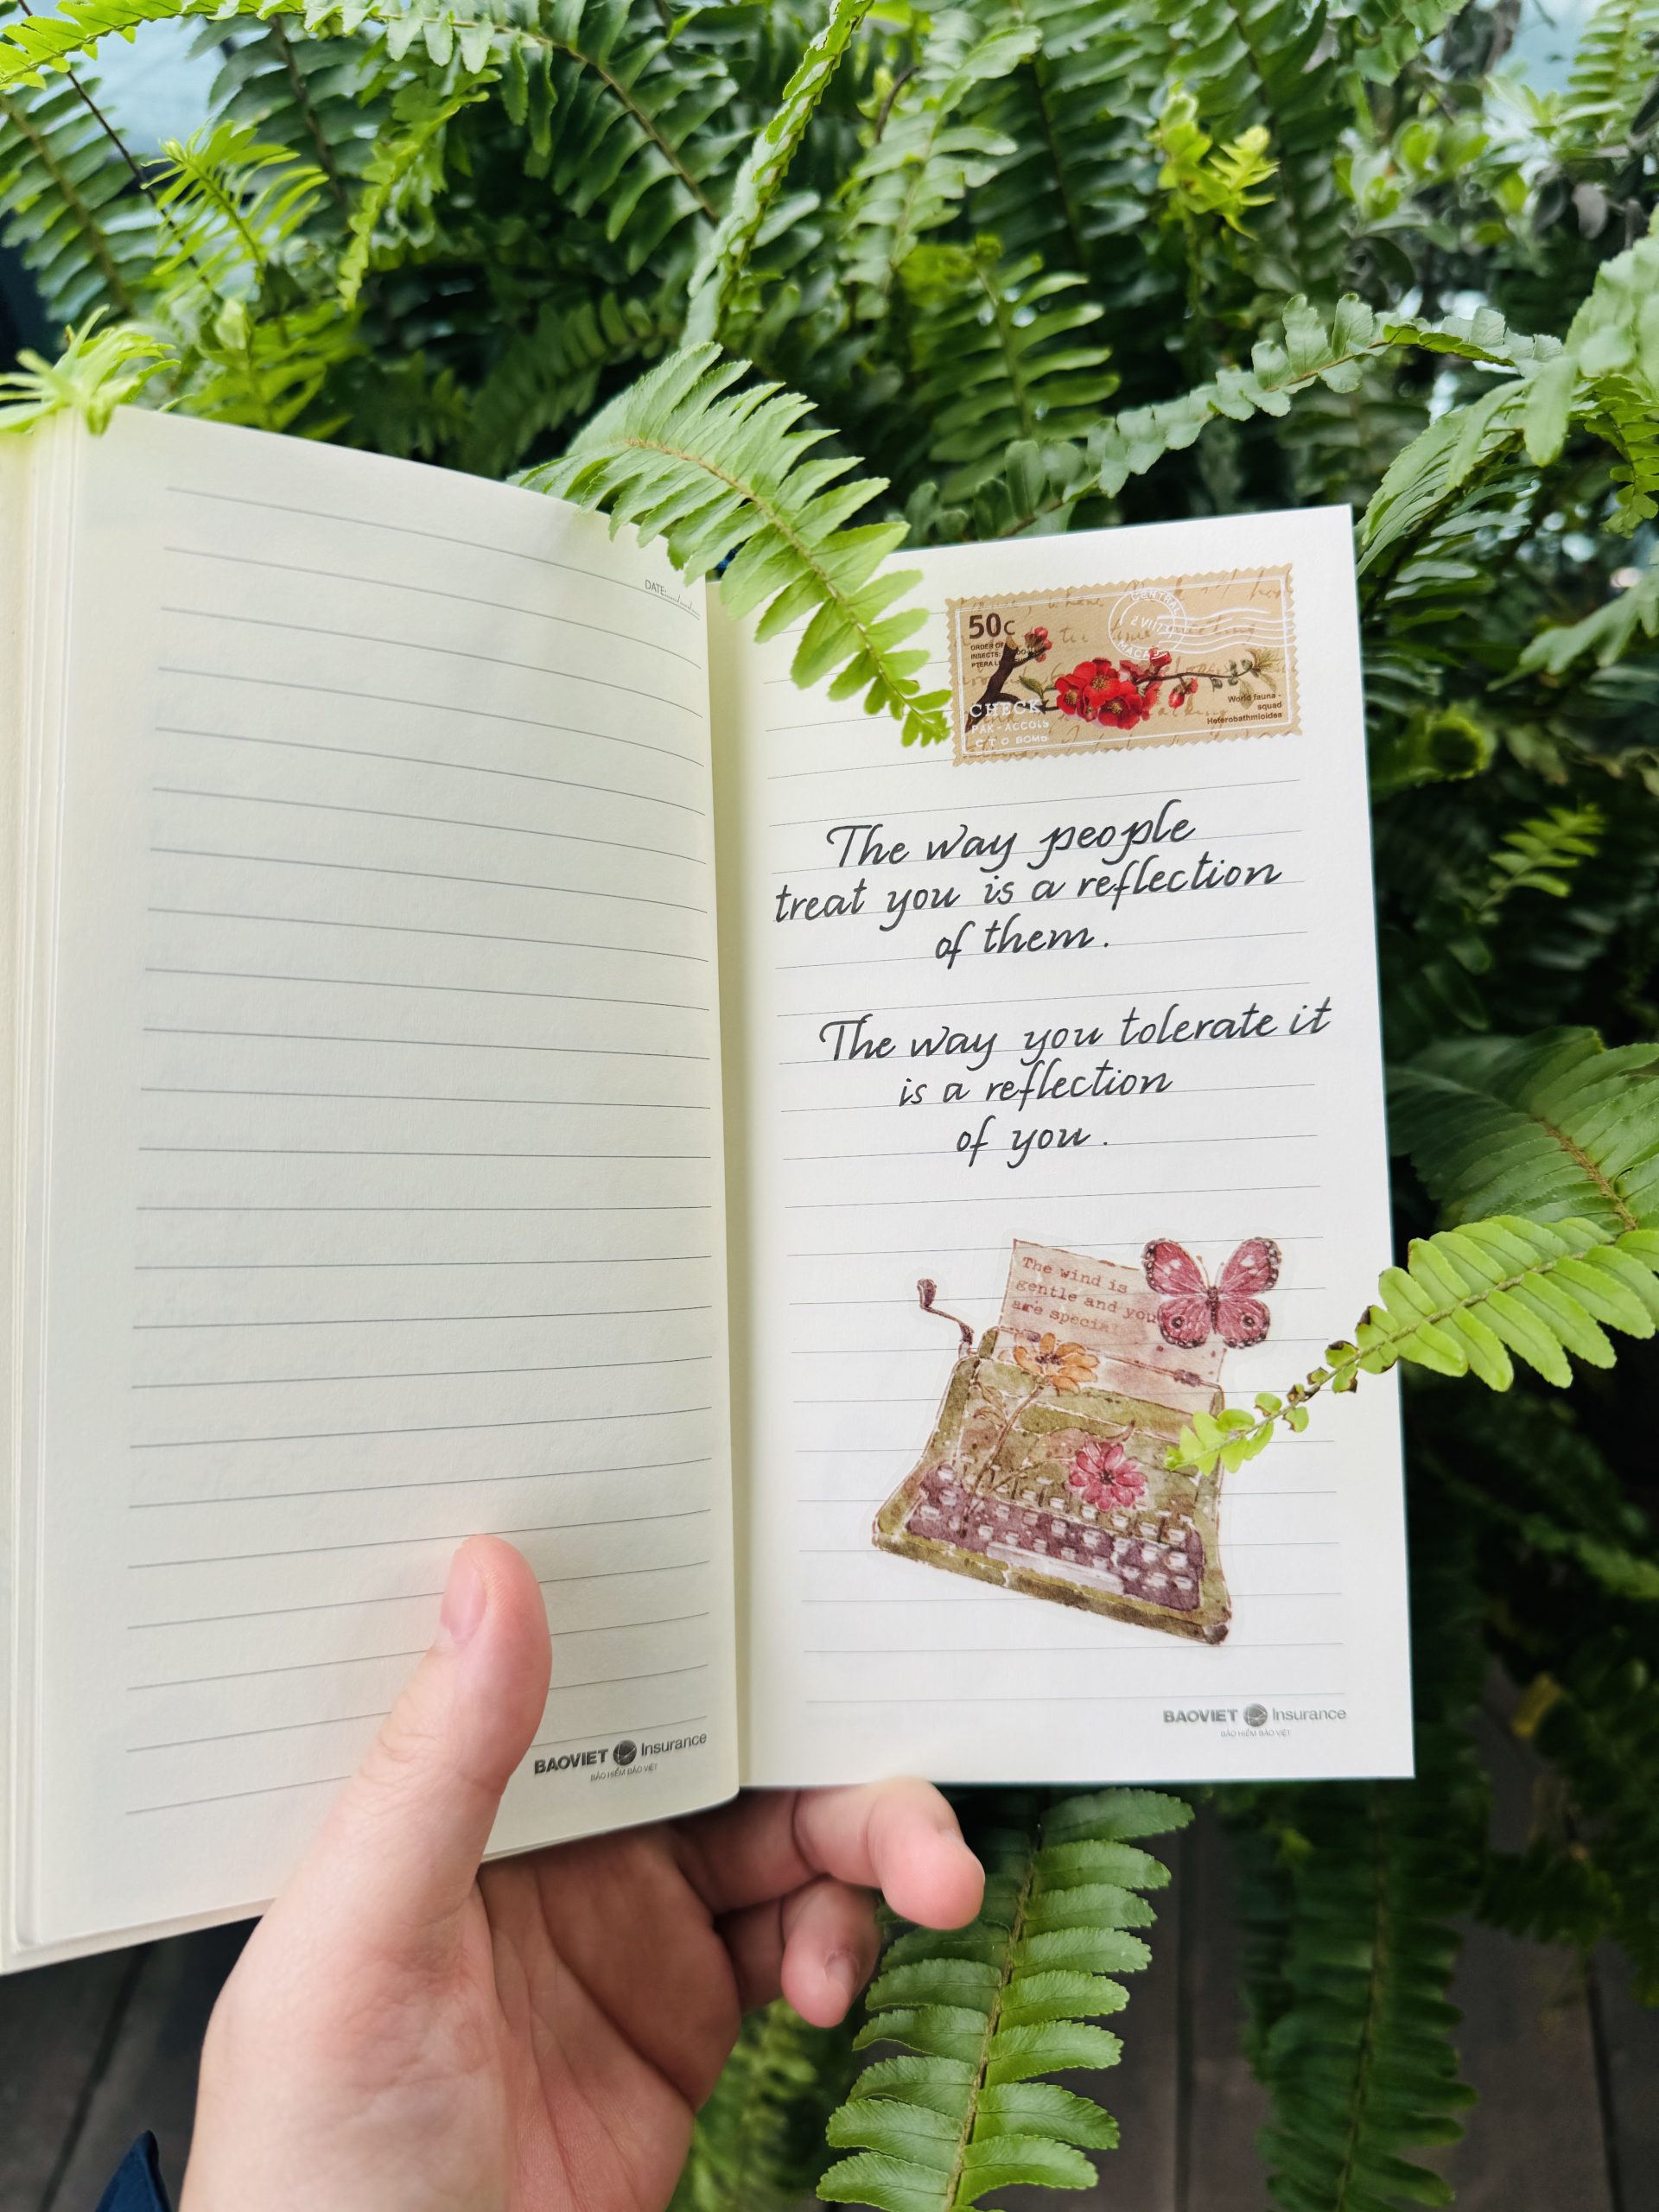 DATE:..../..../....
50c
CENTRAL
MACAU
ORDER OF
INSECTS:
PTERA
CHECK
PAK-ACCOIS
C T O BOMB
World fauna -
squad
Heterobathmioidea
The way people
treat you is a reflection
of them.
The way you tolerate it
is a reflection
of you.
The wind is
gentle and you
are special
BAOVIET Insurance
BẢO HIỂM BẢO VIỆT
BAOVIET Insurance
BẢO HIỂM BẢO VIỆT